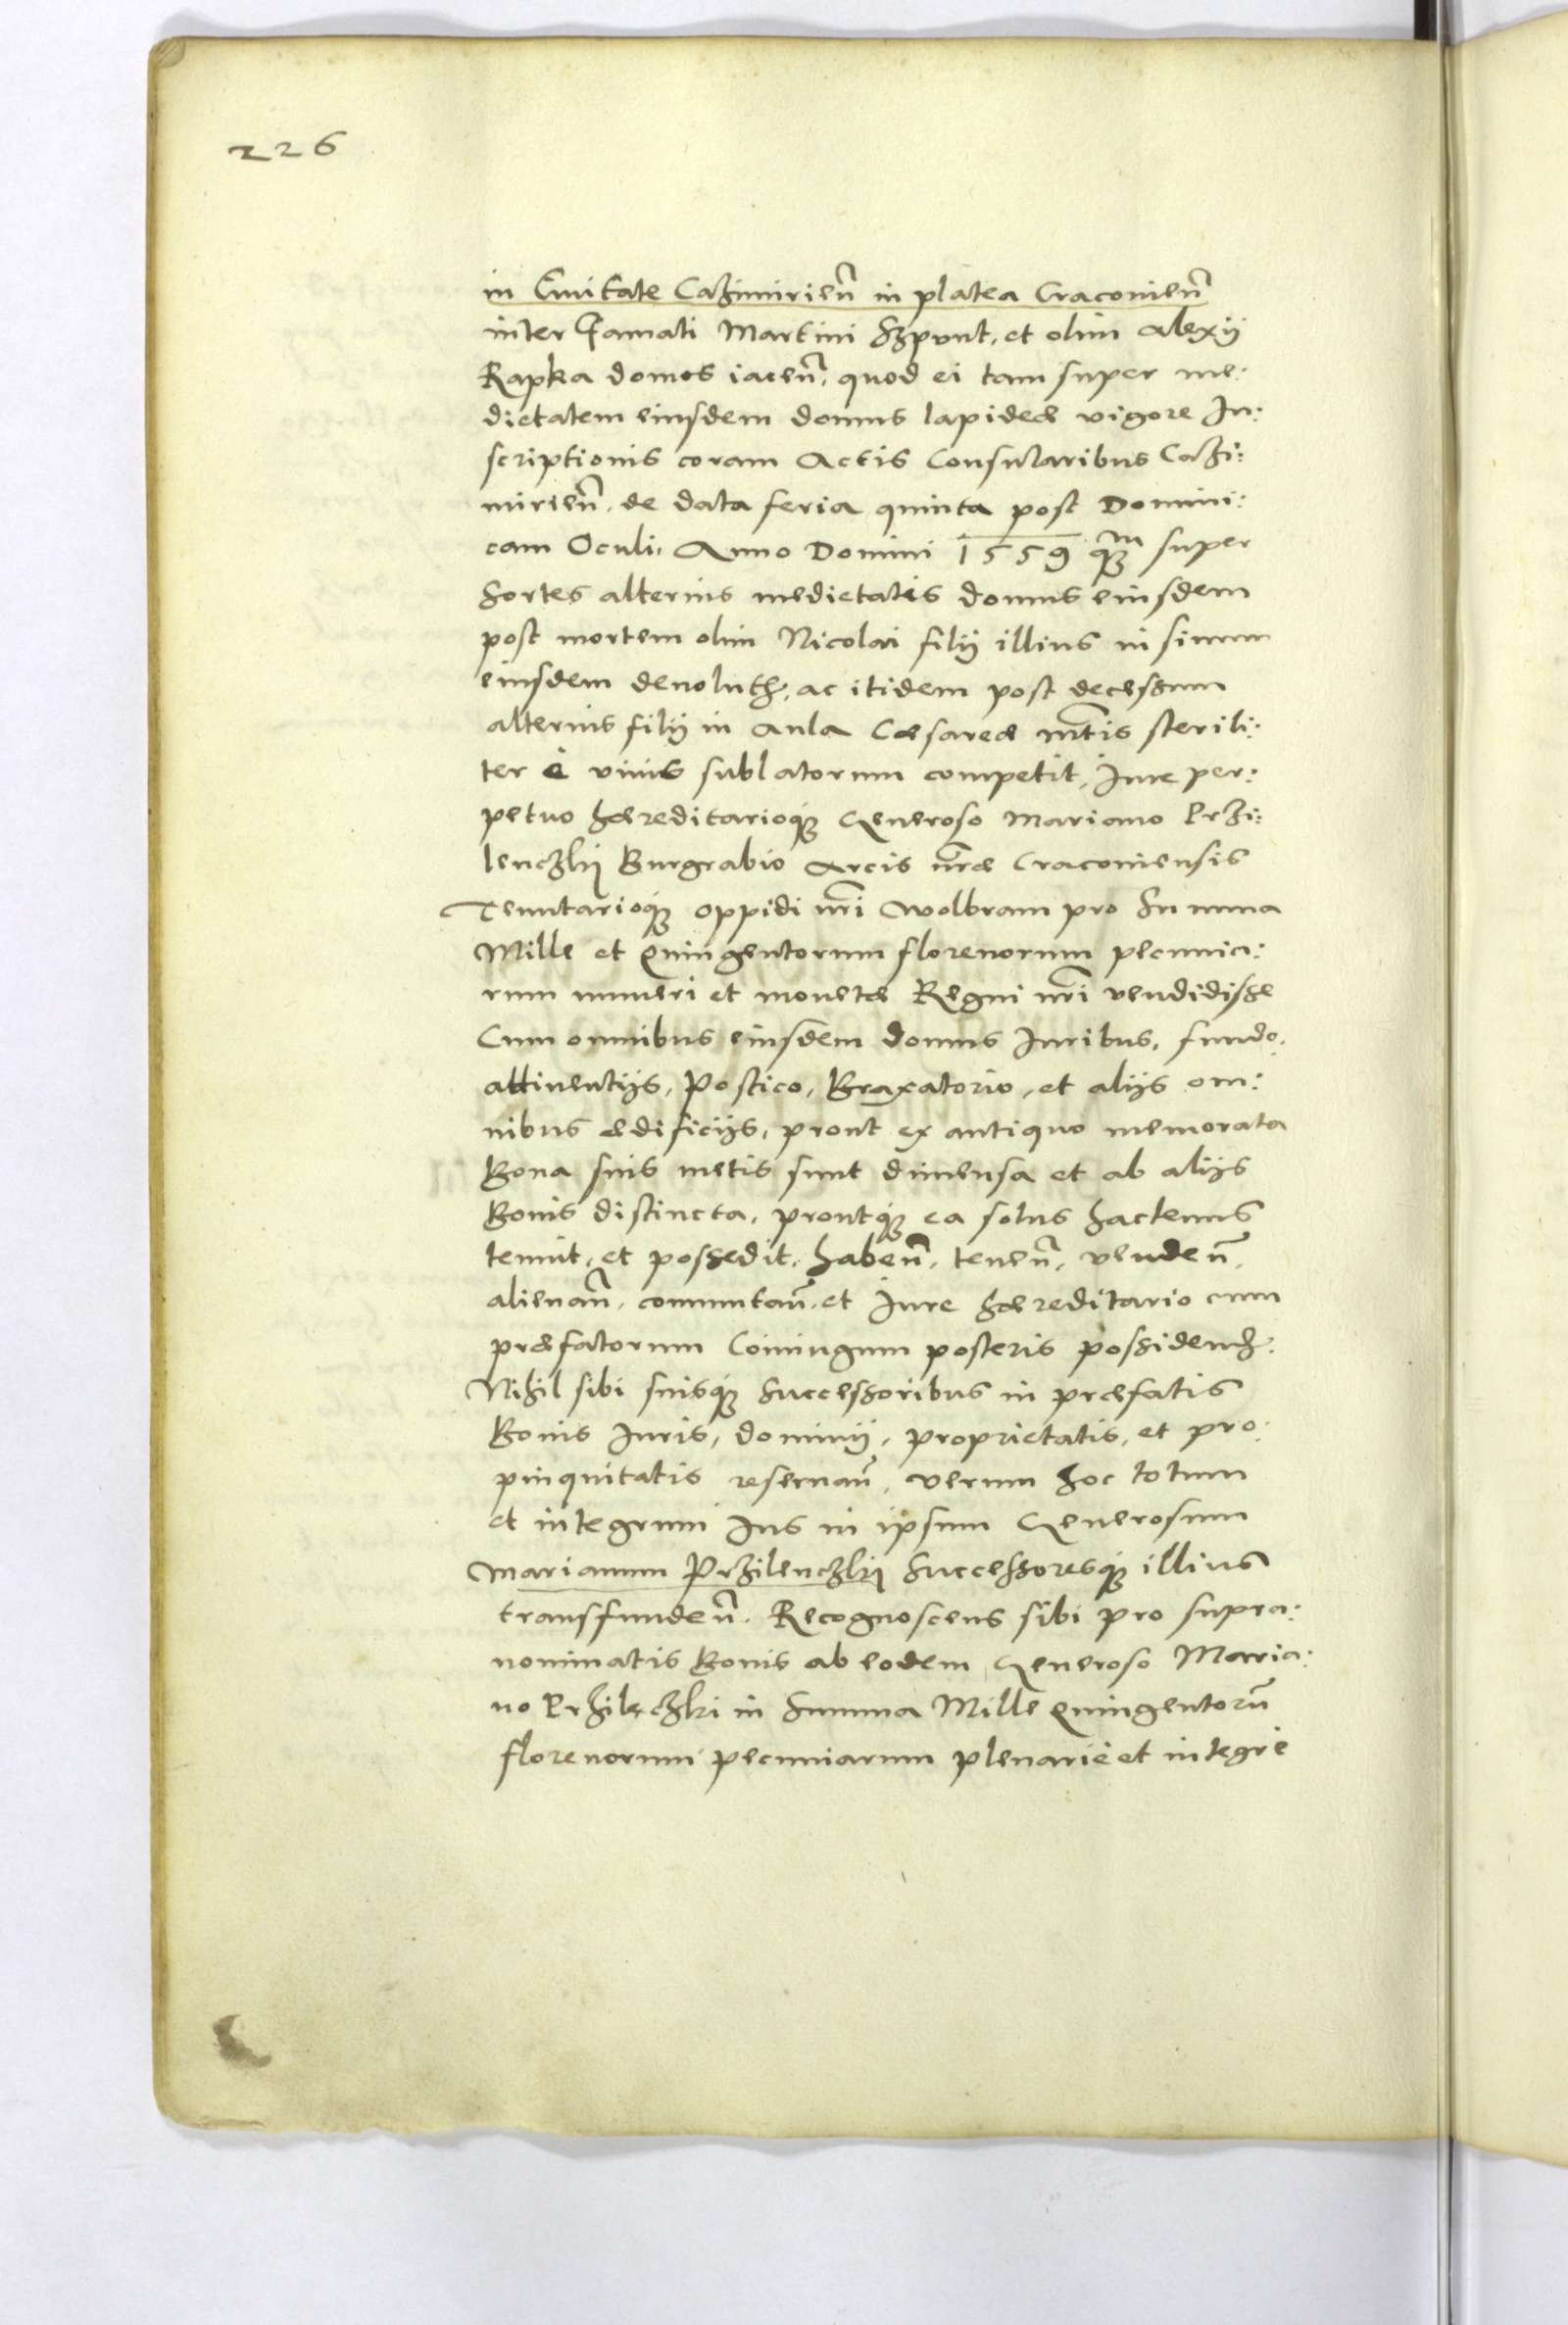 226
in Civitate Cazimirień in platea Cracovień
inter famati Martini Szpunt, et olim Alexÿ
Rapka domos iaceń, quod ei tam super me:
dietatem eiusdem domus lapideæ vigore In:
scriptionis coram Actis Consularibus Cazi:
mirień. de data feria quinta post Domini:
cam Oculi, Anno Domini 1559 qꝫm super
sortes alterius medietatis domus eiusdem
post mortem olim Nicolai filÿ illius in sinum
eiusdem devolutꝫ, ac itidem post decessum
alterius filÿ in Aula Cæsareæ Mtis sterili:
ter è vivis sublatorum competit, Jure per:
petuo hæreditarioqꝫ Generoso Mariano Przi:
lenczkÿ Burgrabio Arcis nræ Cracoviensis
Tenutarioqꝫ oppidi nri Wolbram pro Summa
Mille et Quingentorum florenorum pecunia:
rum numeri et monetæ Regni nri vendidisse
Cum omnibus eiusdem domus Juribus, fundo,
attinentÿs, Postico, Braxatorio, et alÿs om:
nibus ædificÿs, prout ex antiquo memorata
Bona suis metis sunt dimensa et ab alÿs
Bonis distincta, proutqꝫ ea solus hactenus
tenuit, et possedit, habeń, teneń, vendeń,
alienań, comutań, et Jure hæreditario cum
præfatorum Coniugum posteris possidendꝫ.
Nihil sibi suisqꝫ successoribus in præfatis
Bonis Juris, dominÿ, proprietatis, et pro:
pinquitatis reservań, verum hoc totum
et integrum Jus in ipsum Generosum
Marianum Przilenczkÿ Successoresqꝫ illius
transfundeń. Recognoscens sibi pro supra:
nominatis Bonis ab eodem Generoso Maria:
no Przileczki in Summa Mille Quingentorū
florenorum pecuniarum plenariè et integrè